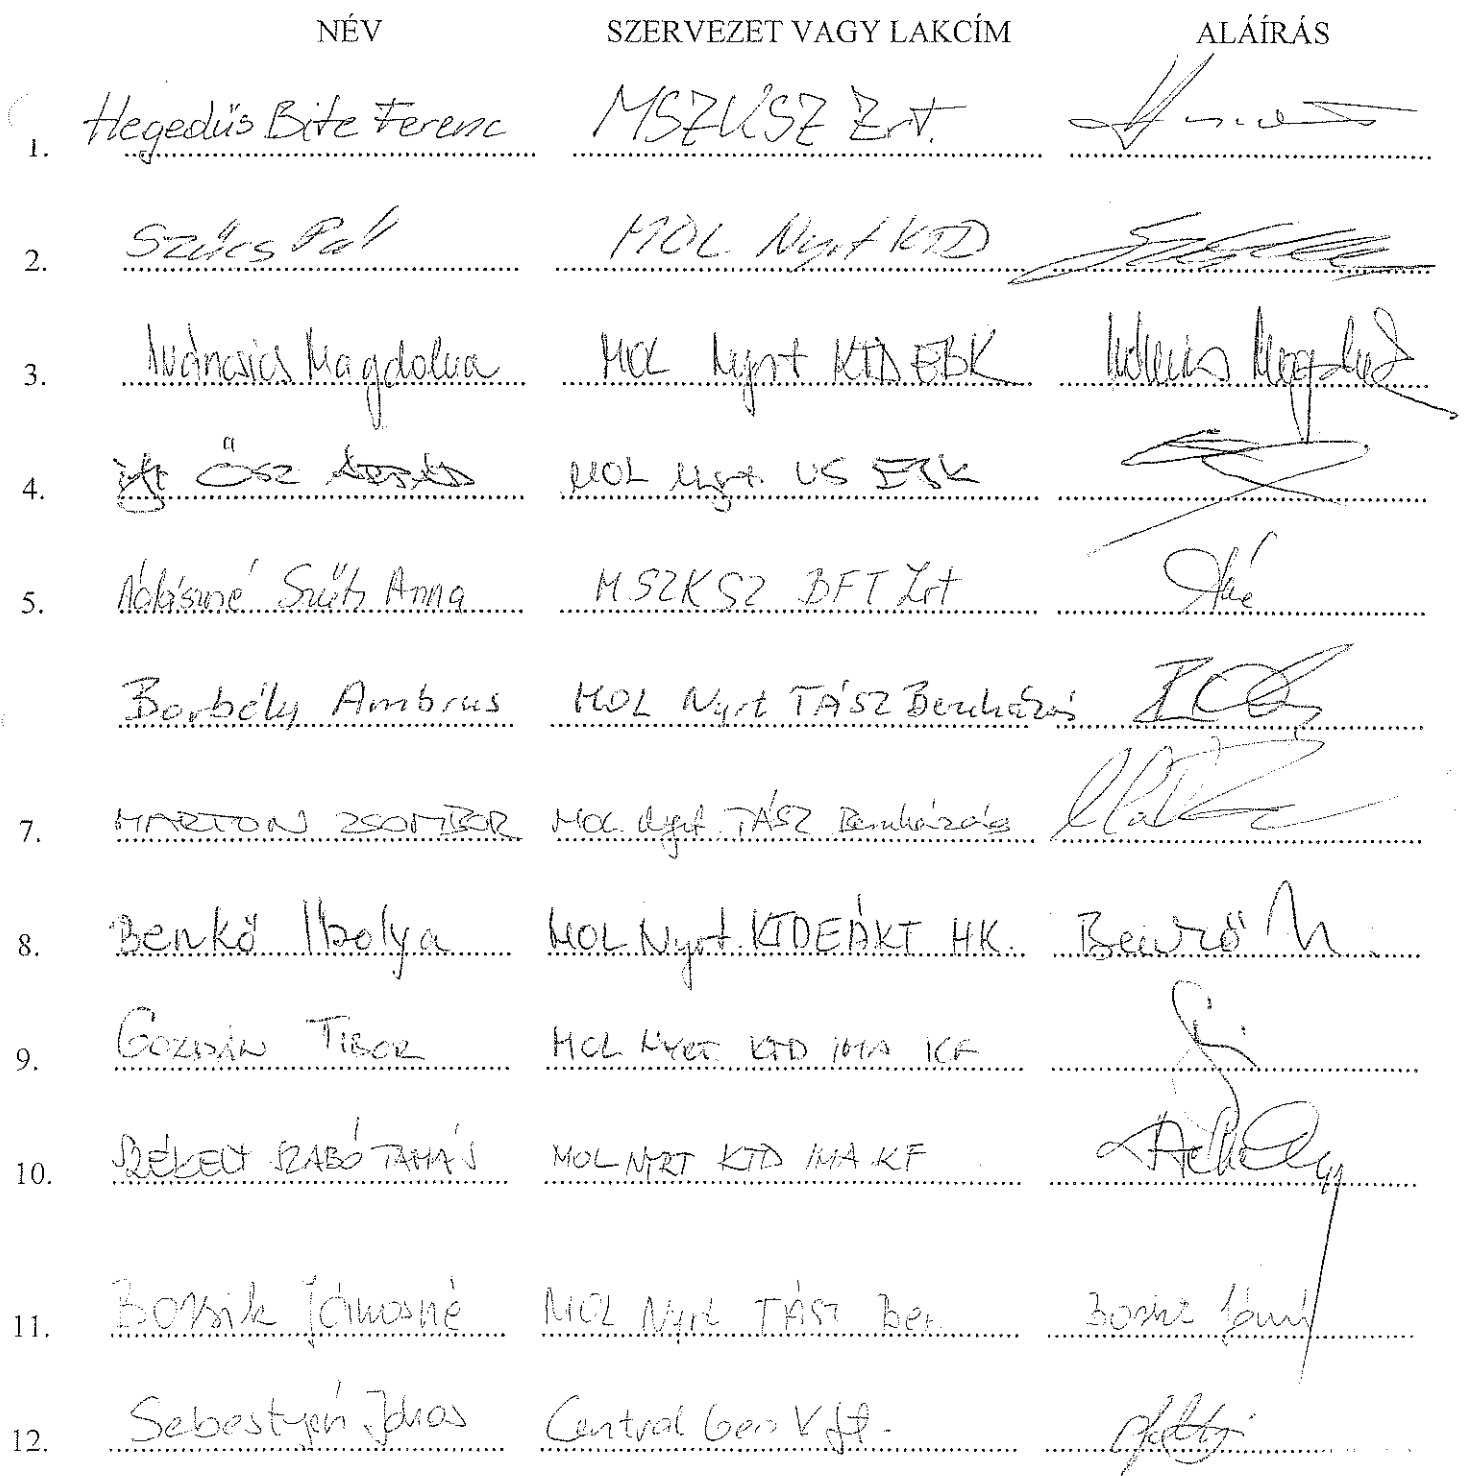 NÉV SZERVEZET VAGY LAKCÍM ALÁÍRÁS
1. Hegedűs Bite Ferenc MSZKSZ Zrt.
2. Szűcs Pál MOL Nyrt KTD
3. Iváncsics Magdolna MOL Nyrt KTD EBK
4. ifj Ősz Árpád MOL Nyrt. US EBK
5. Szűts Anna MSZKSZ BFT Zrt
Borbély Ambrus MOL Nyrt TÁSZ Beruházás
7. MARTON ZSOMBOR MOL Nyrt TÁSZ Beruházás
8. Benkő Ibolya MOL Nyrt. KTD EÁKT HK. Benkő
9. GOZDÁN TIBOR MOL NYRT KTD IMA KF
10. SZÉKELY SZABÓ TAMÁS MOL NYRT KTD IMA KF
11. Bozsik Jánosné MOL Nyrt TÁSZ Ber.
12. Sebestyén Central Geo Kft.